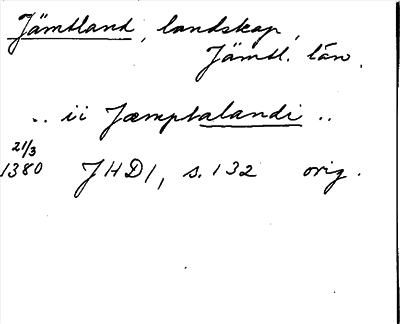 Jämtland, landskap,
Jämtl. län.
.. ii Jæmptalandi ..
21/3
1380 JHD 1, s. 132 orig.